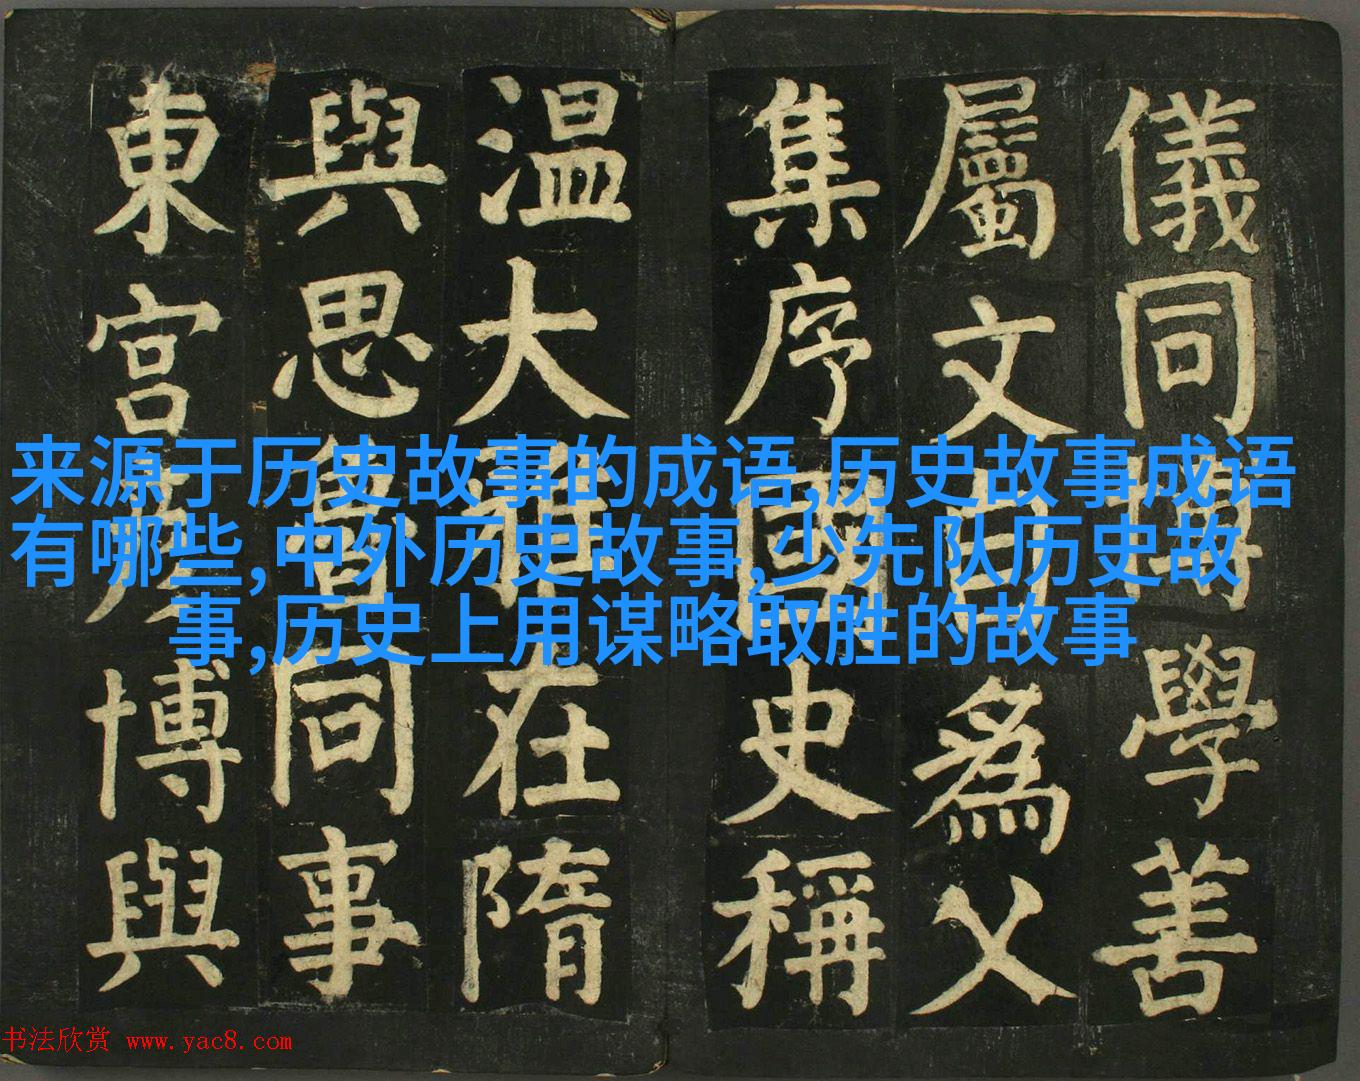 儀同博學善
屬文自爲父
集序國史稱
温大雅在隋
與思魯同事
東宫彦博與
来源于历史故事的成语,历史故事成语
有哪些,中外历史故事,少先队历史故
事,历史上用谋略取胜的故事
书法欣赏 www.yac8.com